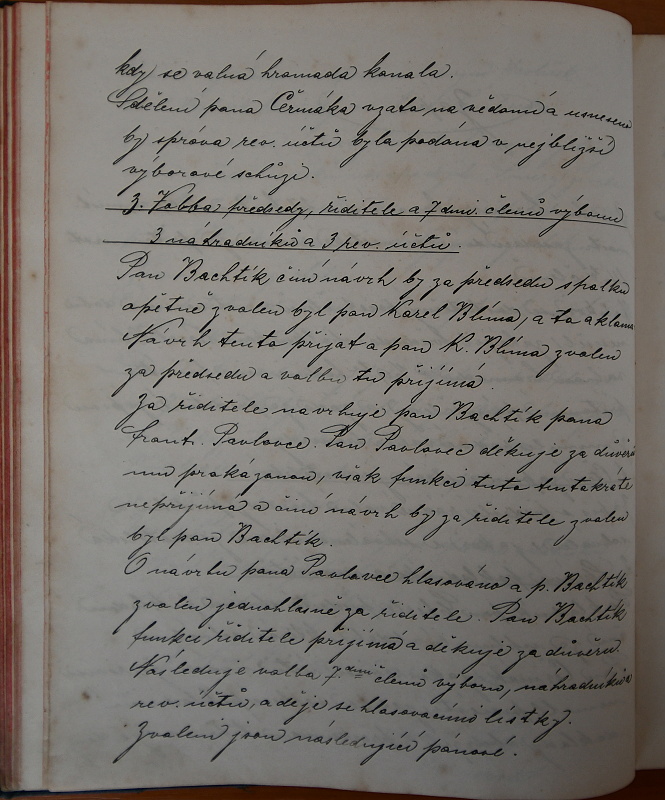 kdy se valná hromada konala.
Sdělení pana Čermáka vzato na vědomí a usneseno
by zpráva rev. účtů byla podána v nejbližší
výborové schůzi.
3. Volba předsedy, řiditele a 7dmi. členů výboru
3 náhradníků a 3 rev. účtů.
Pan Bachtík činí návrh by za předsedu spolku
opětně zvolen byl pan Karel Blíma, a to aklama
Návrh tento přijat a pan K. Blíma zvolen
za předsedu a volbu tu přijímá.
Za řiditele navrhuje pan Bachtík pana
Frant. Pavlovce. Pan Pavlovec děkuje za důvěru
mu prokázanou, však funkci tuto tentokráte
nepřijímá a činí návrh by za řiditele zvolen
byl pan Bachtík.
O návrhu pana Pavlovce hlasováno a p. Bachtík
zvolen jednohlasně za řiditele. Pan Bachtík
funkci řiditele přijímá a děkuje za důvěru.
Následuje volba 7dmi členů výboru, náhradníků a
rev. účtů, a děje se hlasovacími lístky.
Zvoleni jsou následující pánové.